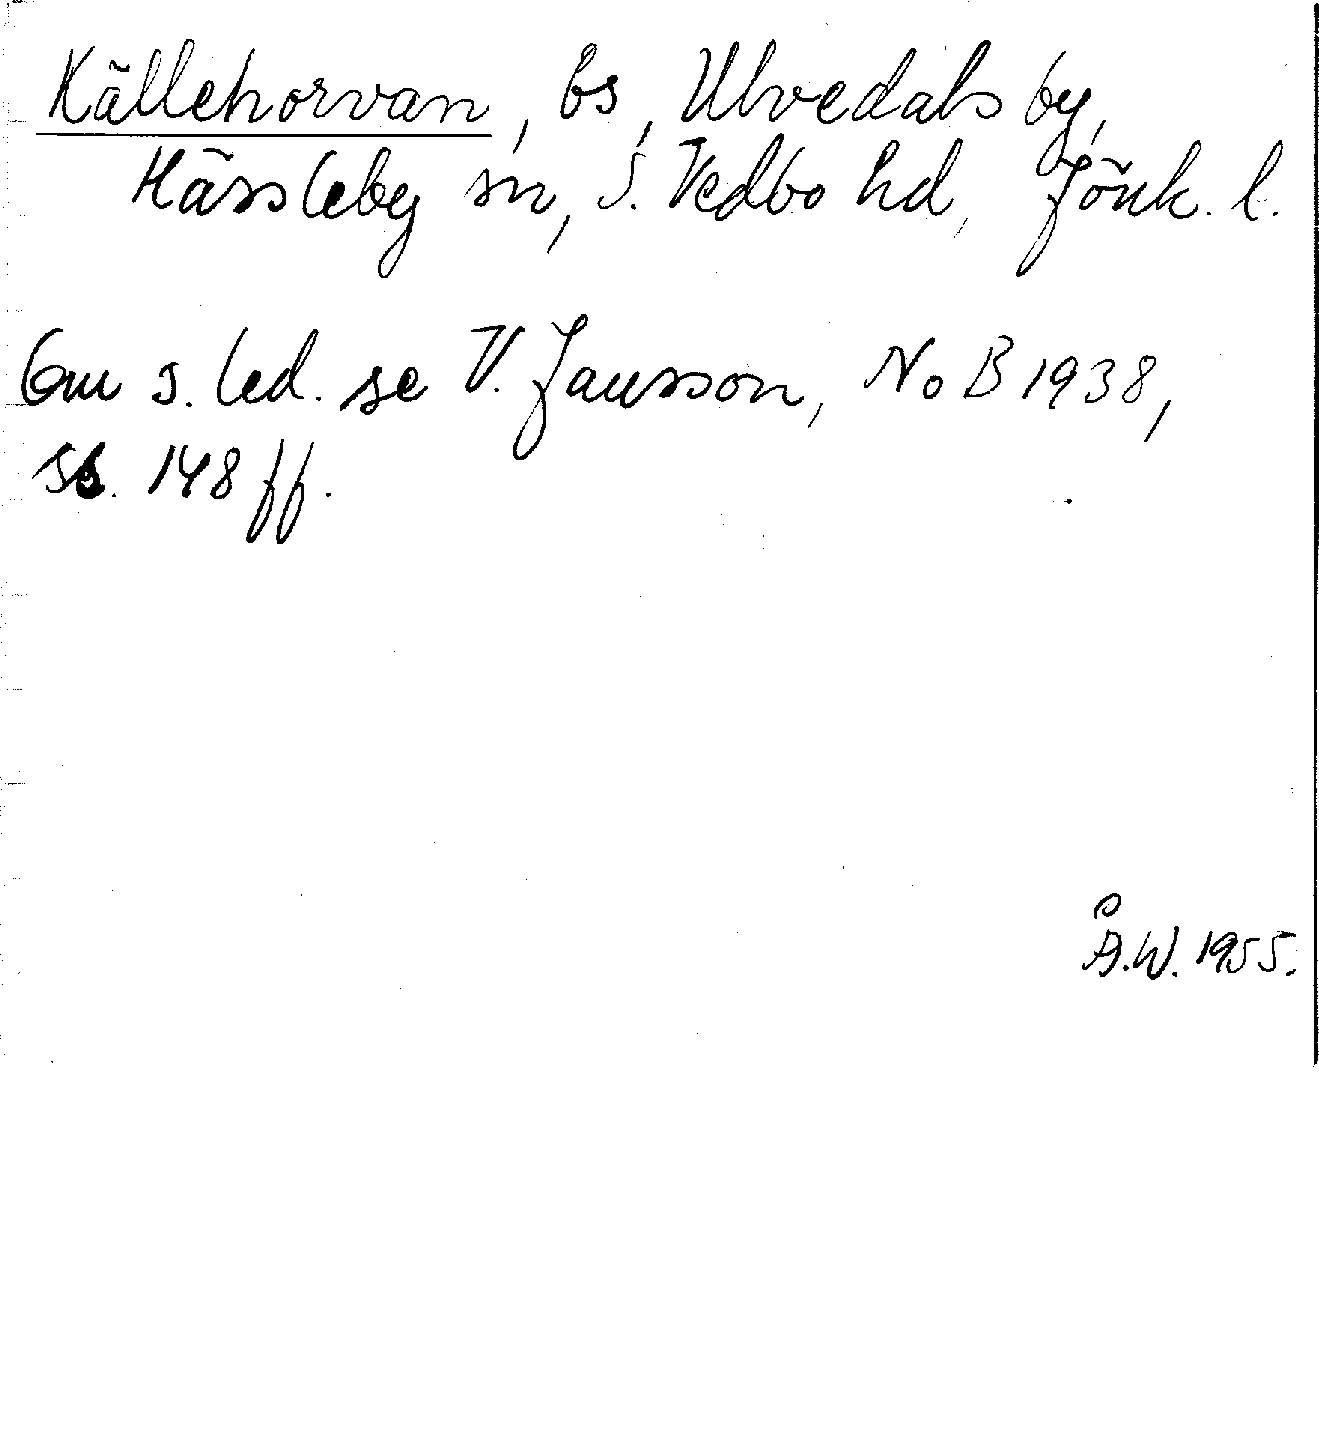 Källehorvan, bs, Ulvedals by,
Hässleby sn, S. Vedbo hd, Jönk. l.
Om s. led. se V. Jansson, NoB 1938,
ss. 148 ff.
Å.W. 1955.